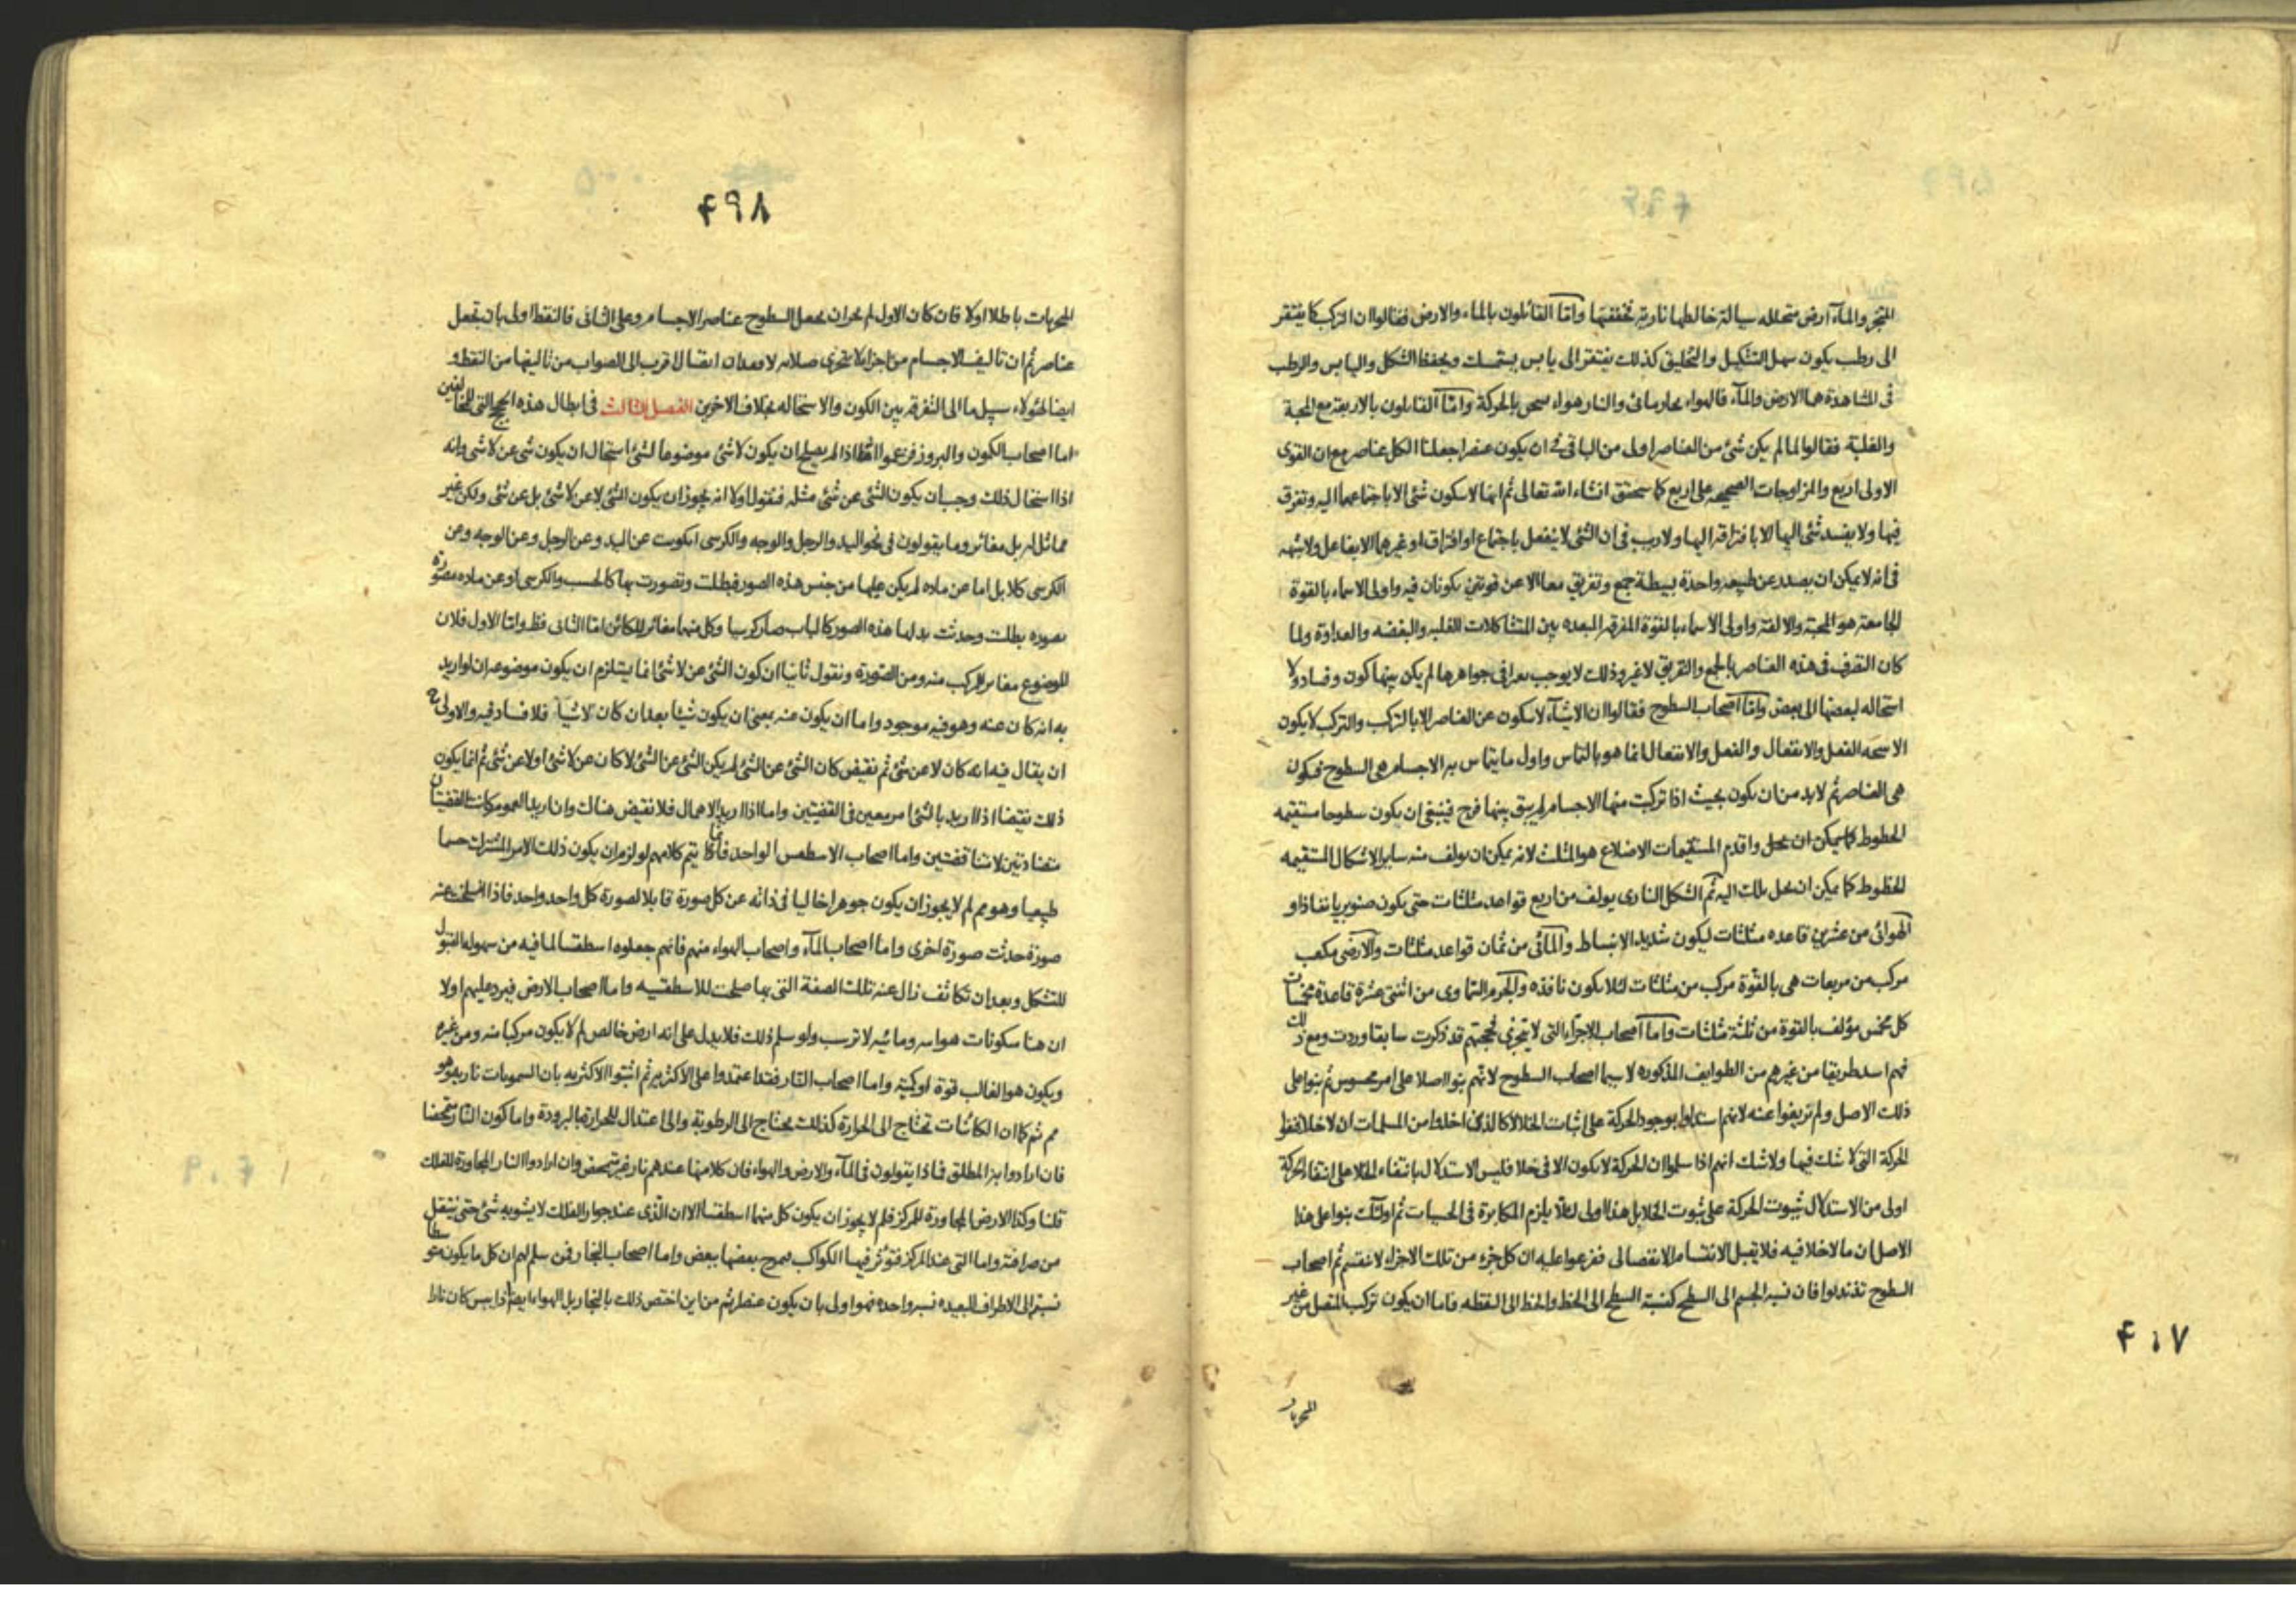 المتحجر والماء ارض متحلله سيالة خالطها نارية تخففها واما القائلون بالماء والارض فقالوا ان التركب كما يفتقر
الى رطب يكون سهل التشكيل والتخليق كذلك يفتقر الى يابس يستمسك ويحفظ الشكل واليابس والرطب
فى المشاهدة هما الارض والماء فالهواء بخار مائى والنار هواء سخن بالحركة واما القائلون بالاربعة مع المحبة
والغلبة فقالوا لما لم يكن شئ من العناصر اولى من الباقى فى ان يكون عنصرا جعلنا الكل عناصر مع ان القوى
الاولى اربع والمزاوجات الصحيحه على اربع كما سيحقق انشاء الله تعالى ثم انها لا يتكون شئ الا باجتماعها اليه وتفرق
فيها ولا يفسد شئ اليها الا بافتراقه اليها ولا ريب فى ان الشئ لا ينفعل باجتماع او افتراق او غيرهما الا بفاعل ولا شبهه
فى انه لا يمكن ان يصدر عن طبيعه واحدة بسيطة جمع وتفريق معا الا عن قوتين يكونان فيه واولى الاسماء بالقوة
الجامعة هو المحبة والالفة واولى الاسماء بالقوة المفرقه المبعده بين المتشاكلات الغلبه والبغضه والعداوة ولما
كان التصرف فى هذه العناصر بالجمع والتفريق لا غير وذلك لا يوجب تغيرا فى جواهرها لم يكن بينها كون وفساد ولا
استحاله لبعضها الى بعض واما اصحاب السطوح فقالوا ان الاشياء لا يتكون عن العناصر الا بالتركب والتركب لا يكون
الا الفعل والانفعال والفعل والانفعال انما هو بالتماس واول ما يتماس به الاجسام هى السطوح فيكون
هى العناصر ثم لا بد من ان يكون بحيث اذا تركبت منها الاجسام لم يبق بينها فرج فينبغى ان يكون سطوحا مستقيمه
الخطوط كما يمكن ان يحل واقدم المستقيمات الاضلاع هو المثلث لانه يمكن ان يولف منه ساير الاشكال المستقيمه
الخطوط كما يمكن ان يحل تلك اليه ثم الشكل النارى يولف من اربع قواعد مثلثات حتى يكون صنوبريا نفاذا و
الهوائى من عشرين قاعده مثلثات ليكون شديد الانبساط والمائى من ثمان قواعد مثلثات والارضى مكعب
مركب من مربعات هى بالقوة مركب من مثلثات لئلا يكون نافذه والجرم السماوى من اثنتى عشرة قاعدة مخمسات
كل مخمس مؤلف بالقوة من ثلثة مثلثات واما اصحاب الاجزاء التى لا يتجزى فحجتهم قد ذكرت سابقا وردت ومع ذلك
فهم اسد طريقا من غيرهم من الطوايف المذكوره لا سيما اصحاب السطوح لانهم بنوا اصلا على امر محسوس ثم بنوا على
ذلك الاصل ولم تزيغوا عنه لانهم استدلوا بوجود الحركة على اثبات الخلا لا كالذى اخلط من المسلمات ان لا خلا فنفوا
الحركة التى لا شك فيها ولا شك انهم اذا سلموا ان الحركة لا يكون الا فى خلا فليس الاستدلال بانتفاء الخلا على انتفاء الحركة
اولى من الاستدلال بثبوت الحركة على ثبوت الخلا بل هذا اولى لئلا يلزم المكابرة فى الحسيات ثم اولئك بنوا على هذا
الاصل ان ما لا خلا فيه فلا يقبل الانقسام الانفصالى ففرعوا عليه ان كل جزء من تلك الاجزاء لا ينقسم ثم اصحاب
السطوح تذبذبوا فان نسبة الجسم الى السطح كنسبة السطح الى الخط والخط الى النقطه فاما ان يكون تركب المتصل من غير
۴۰۷
۴۹۸
المتجزيات باطلا اولا فان كان الاول لم يجز ان يجعل السطوح عناصر الاجسام وعلى الثانى فالنقط اولى بان تجعل
عناصر ثم ان تاليف الاجسام من اجزاء لا يتجزى صلابة لا فقدان اتصال اقرب الى الصواب من تاليفها من النقط و
ايضا لهؤلاء سبيل ما الى التفرقه بين الكون والاستحاله بخلاف الاخرين الفصل الثالث فى ابطال هذه الحجج التى للمخالفين
اما اصحاب الكون والبروز فزعموا انه اذا لم يصلح ان يكون لا شئ موضوعا لشئ استحال ان يكون شئ عن لا شئ وانه
اذا استحال ذلك وجب ان يكون الشئ عن شئ مثله فنقول اولا انه يجوز ان يكون الشئ لا عن لا شئ بل عن شئ ولكن غير
مماثل له بل مغائر وما يقولون فى نحو اليد والرجل والوجه والكرسى ايكونت عن اليد وعن الرجل وعن الوجه وعن
الكرسى كلا بل اما عن ماده لم يكن عليها من جنس هذه الصور فبطلت وتصورت بها كالخشب والكرسى او عن ماده مصورة
بصوره بطلت وحدثت بدلها هذه الصور كالباب صار كرسيا وكل منهما مغائر للكائن اما الثانى فظ واما الاول فلان
الموضوع مغاير للمركب منه ومن الصورة ونقول ثانيا ان كون الشئ عن لا شئ انما يستلزم ان يكون موضوعه ان لو اريد
به انه كان عنه وهو فيه موجود واما ان يكون عنه بمعنى ان يكون شيئا بعد ان كان لا شيئا فلا فساد فيه والاولى ح
ان يقال فيه انه كان لا عن شئ ثم نقيض كان الشئ عن الشئ لم يكن الشئ عن الشئ لا كان عن لا شئ او لا عن شئ ثم انما يكون
ذلك نقيضا اذا اريد بالشئ امر معين فى القضيتين واما اذا اريد الاهمال فلا نقيض هناك وان اريد العموم كانت القضيتان
متضادتين لا متناقضتين واما اصحاب الاسطقس الواحد فانما يتم كلامهم لو لزم ان يكون ذلك الامر المشترك جسما
طبيعيا وهو مم لم لا يجوز ان يكون جوهرا خاليا فى ذاته عن كل صورة قابلا لصورة كل واحد واحد فاذا انسلخت عنه
صورة حدثت صورة اخرى واما اصحاب الماء واصحاب الهواء منهم فانهم جعلوه اسطقسا لما فيه من سهولة القبول
للتشكل وبعد ان تكاثف زال عنه تلك الصفة التى بها صلحت للاسطقسيه واما اصحاب الارض فيرد عليهم اولا
ان هنا متكونات هوائيه ومائيه لا ترسب ولو سلم ذلك فلا يدل على انه ارض خالص لم لا يكون مركبا منه ومن غيره
ويكون هو الغالب قوة او كمية واما اصحاب النار فقد اعتمدوا على الاكثريه ثم اثبتوا الاكثريه بان السمويات نارية وهو
مم ثم كما ان الكائنات تحتاج الى الحرارة كذلك يحتاج الى الرطوبة والى اعتدال للحرارة بالبرودة واما كون النار متمحضا
فان ارادوا به المطلق فماذا يقولون فى الماء والارض والهواء فان كلا منها عندهم نار غير متمحض وان ارادوا النار المجاورة للفلك
قلنا وكذا الارض المجاورة للمركز فلم لا يجوز ان يكون كل منهما اسطقسا الا ان الذى عند جوار الفلك لا يشوبه شئ حتى ينتقل
من صرافته واما التى عند المركز فتؤثر فيها الكواكب فيمزج بعضها ببعض واما اصحاب البخار فمن سلم لهم ان كل ما يكون متوسطا
نسبته الى الاطراف البعيده نسبة واحدة فهو اولى بان يكون عنصرا ثم من اين اختص ذلك بالبخار بل الهواء ايضا اذا يبس كان نارا